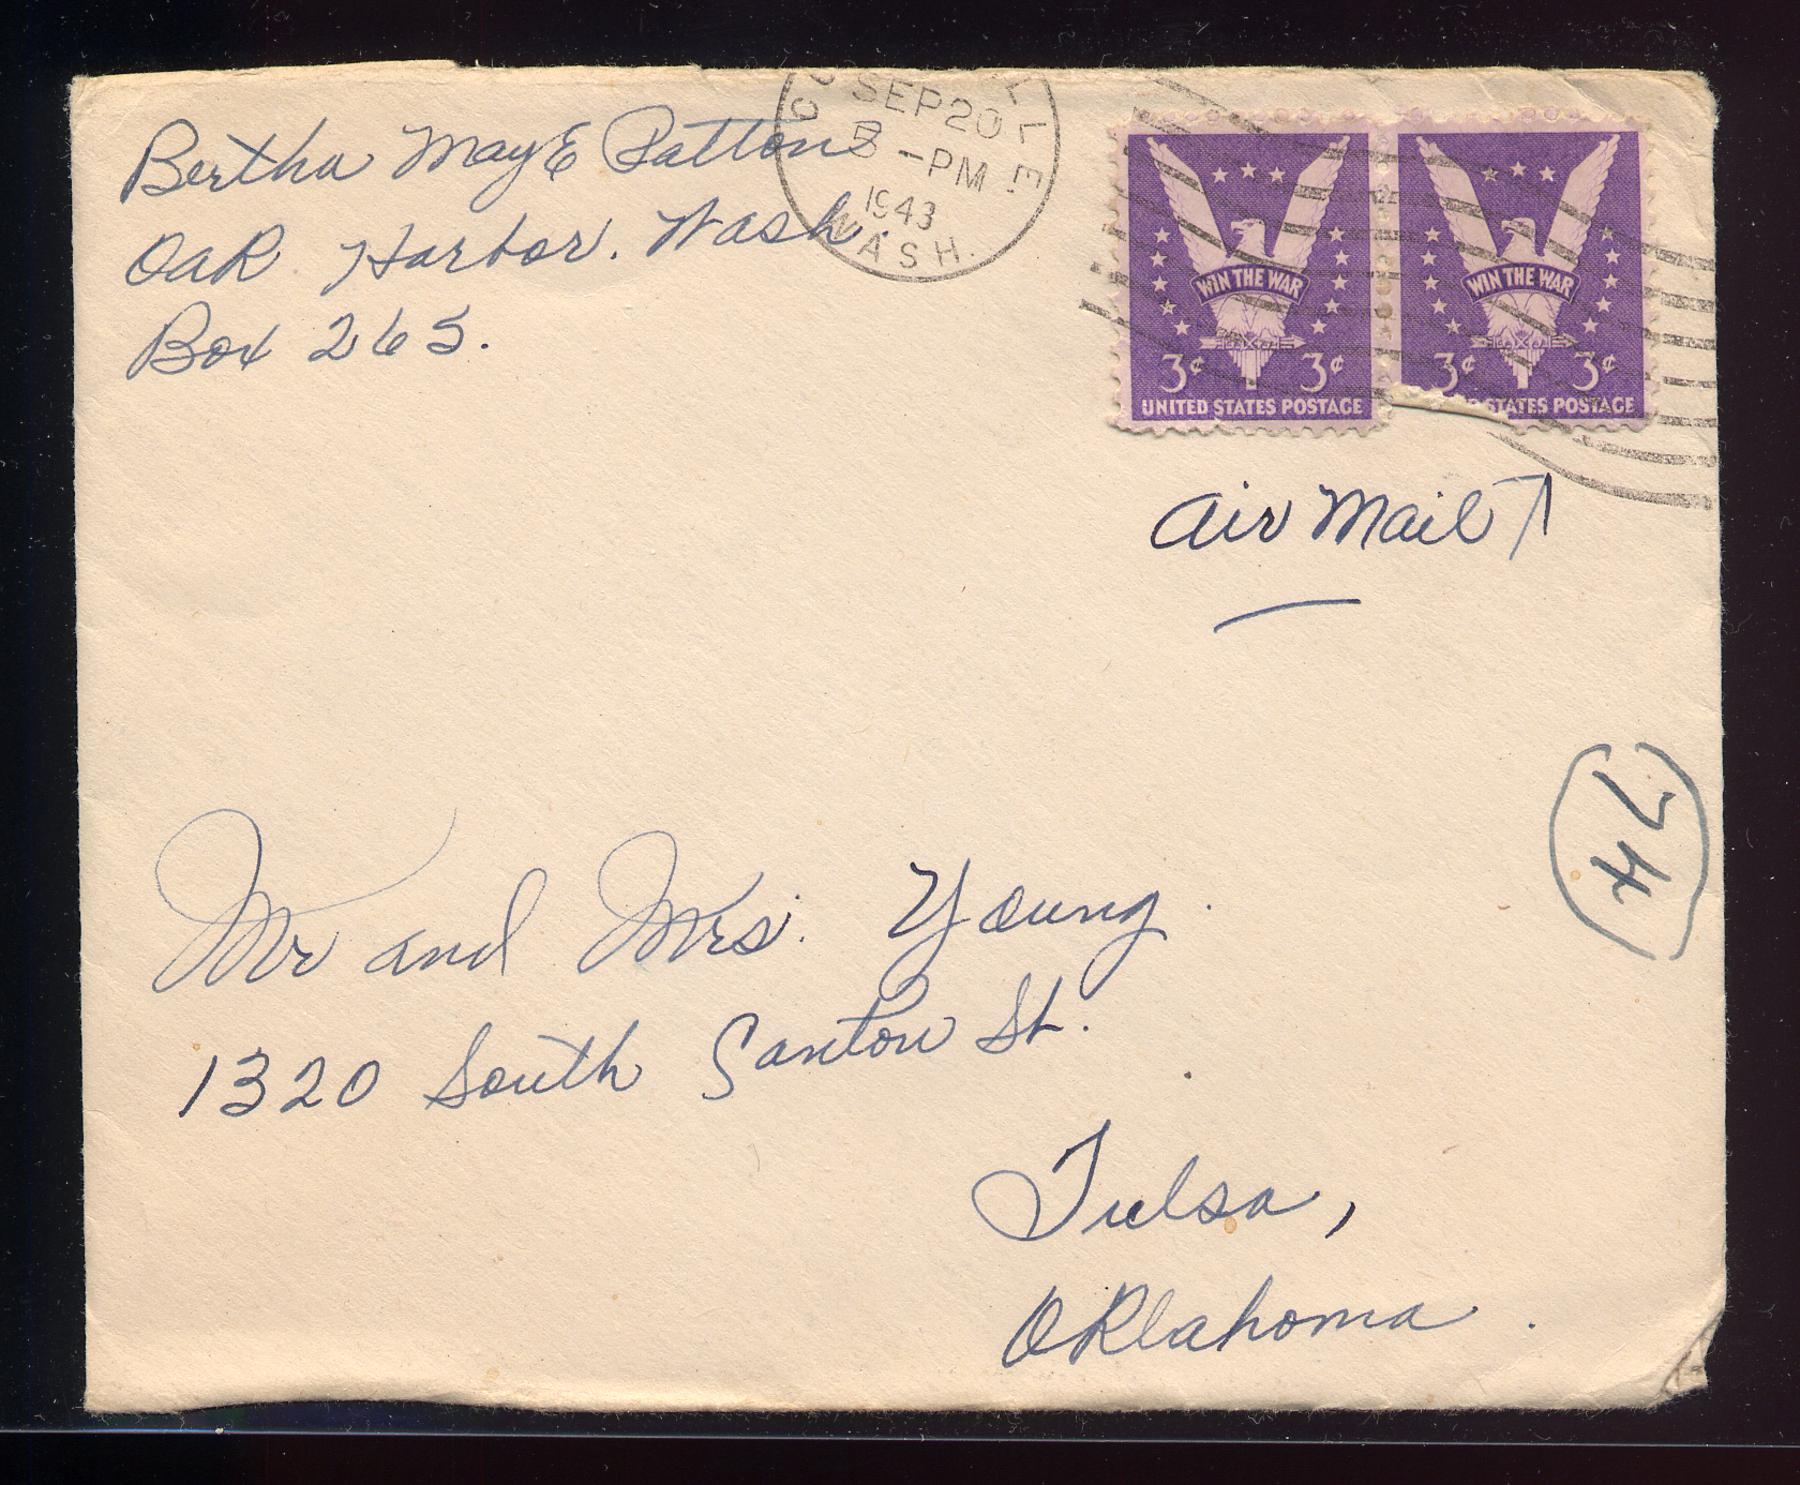 Bertha May E Patton
Oak Harbor. Wash.
Box 265.
SEP 20
5 -PM
1943
WASH.
WIN THE WAR
3¢ 3¢
UNITED STATES POSTAGE
WIN THE WAR
3¢ 3¢
STATES POSTAGE
Air Mail
74
Mr and Mrs. Young.
1320 South Santon St.
Tulsa,
Oklahoma.